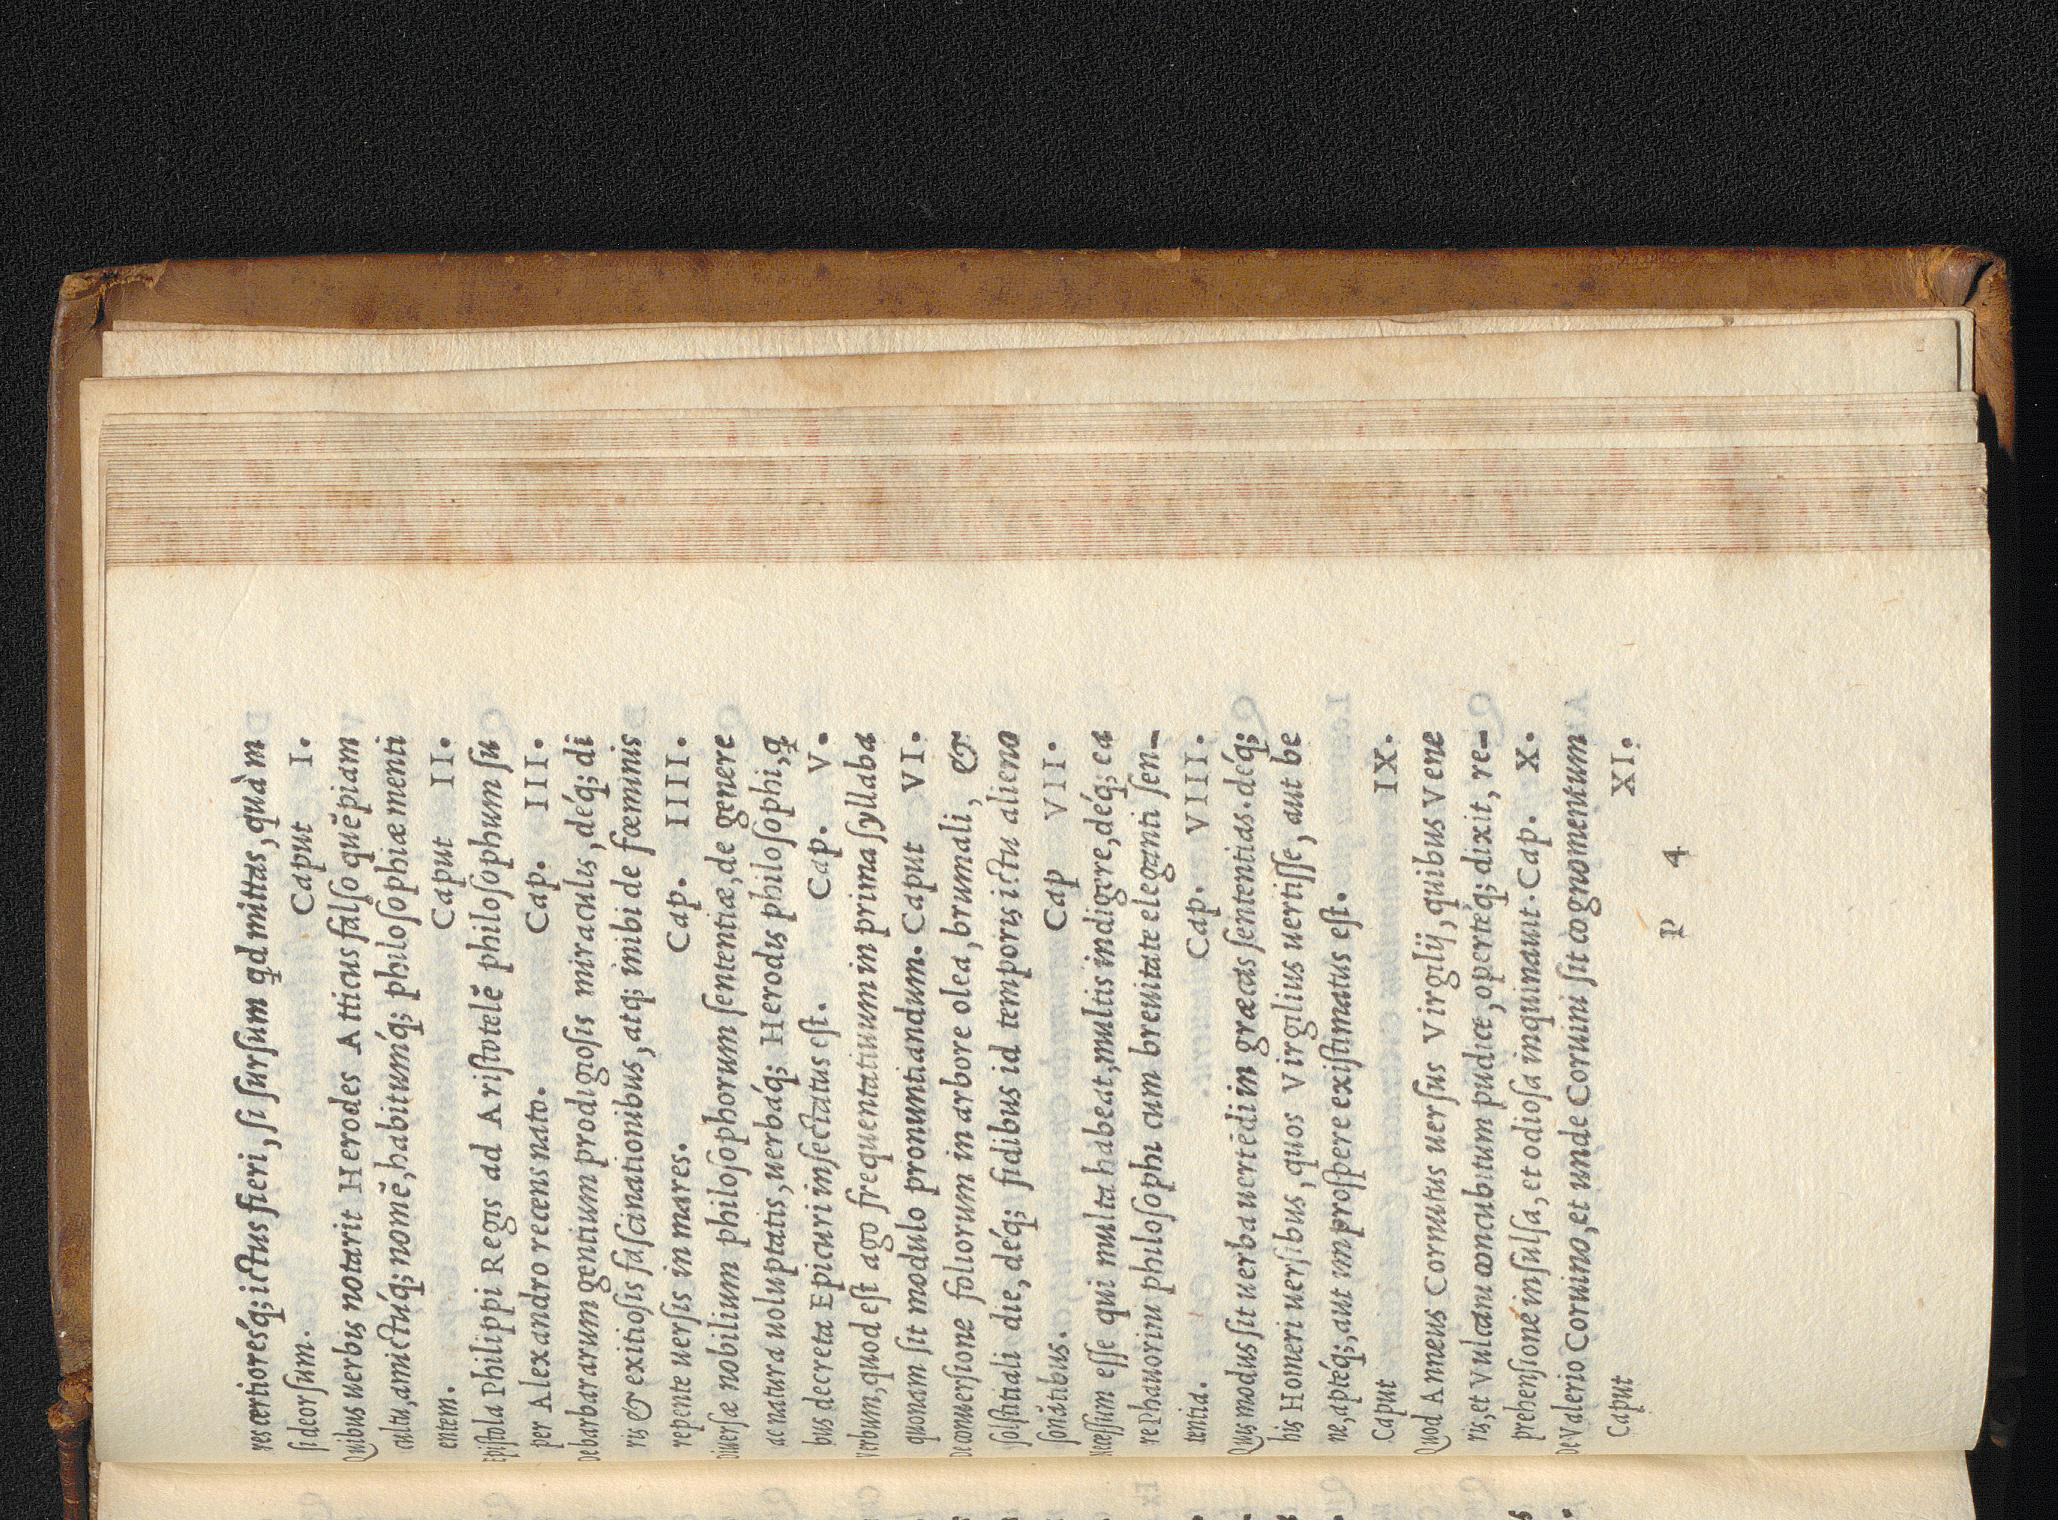 res certioresq́; ictus fieri, si sursum qd mittas, quàm
si deorsum. Caput I.
Quibus uerbis notarit Herodes Atticus falso quẽpiam
cultu, amictúq́; nomẽ, habitumq́; philosophiæ menti
entem. Caput II.
Epistola Philippi Regis ad Aristotelẽ philosophum su
per Alexandro recens nato. Cap. III.
De barbararum gentium prodigiosis miraculis, déq́; di
ris & exitiosis fascinationibus, atq; inibi de fœminis
repente uersis in mares. Cap. IIII.
Diuersæ nobilium philosophorum sententiæ, de genere
ac natura uoluptatis, uerbáq́; Herodis philosophi, q̃
bus decreta Epicuri insectatus est. Cap. V.
Verbum, quod est ago frequentatiuum in prima syllaba
quonam sit modulo pronuntiandum. Caput VI.
De conuersione foliorum in arbore olea, brumali, &
solstitiali die, déq́; fidibus id temporis ictu alieno
sonãtibus. Cap VII.
Necessum esse qui multa habeat, multis indigere, déq́; ea
re Phauorini philosophi cum breuitate eleganti sen-
tentia. Cap. VIII.
Quis modus sit uerba uertẽdi in græcas sententias. déq́;
his Homeri uersibus, quos Virgilius uertisse, aut be
ne, aptéq́;, aut improspere existimatus est.
Caput IX.
Quod Anneus Cornutus uersus Virgilij, quibus Vene
ris, et Vulcani concubitum pudice, opertéq́; dixit, re-
prehensionẽ insulsa, et odiosa inquinauit. Cap. X.
De Valerio Coruino, et unde Coruini sit cognomentum
Caput XI.
P 4